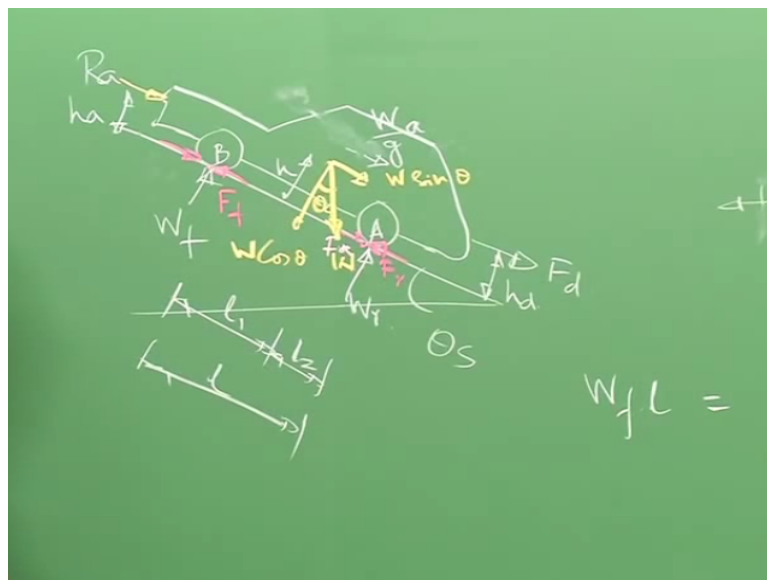 Ra
ha
B
W a
g
h
W sin θ
θ
F f
W f
W Cos θ
W
A
F r
W r
F d
h d
θ s
l 1
l 2
l
W f l =